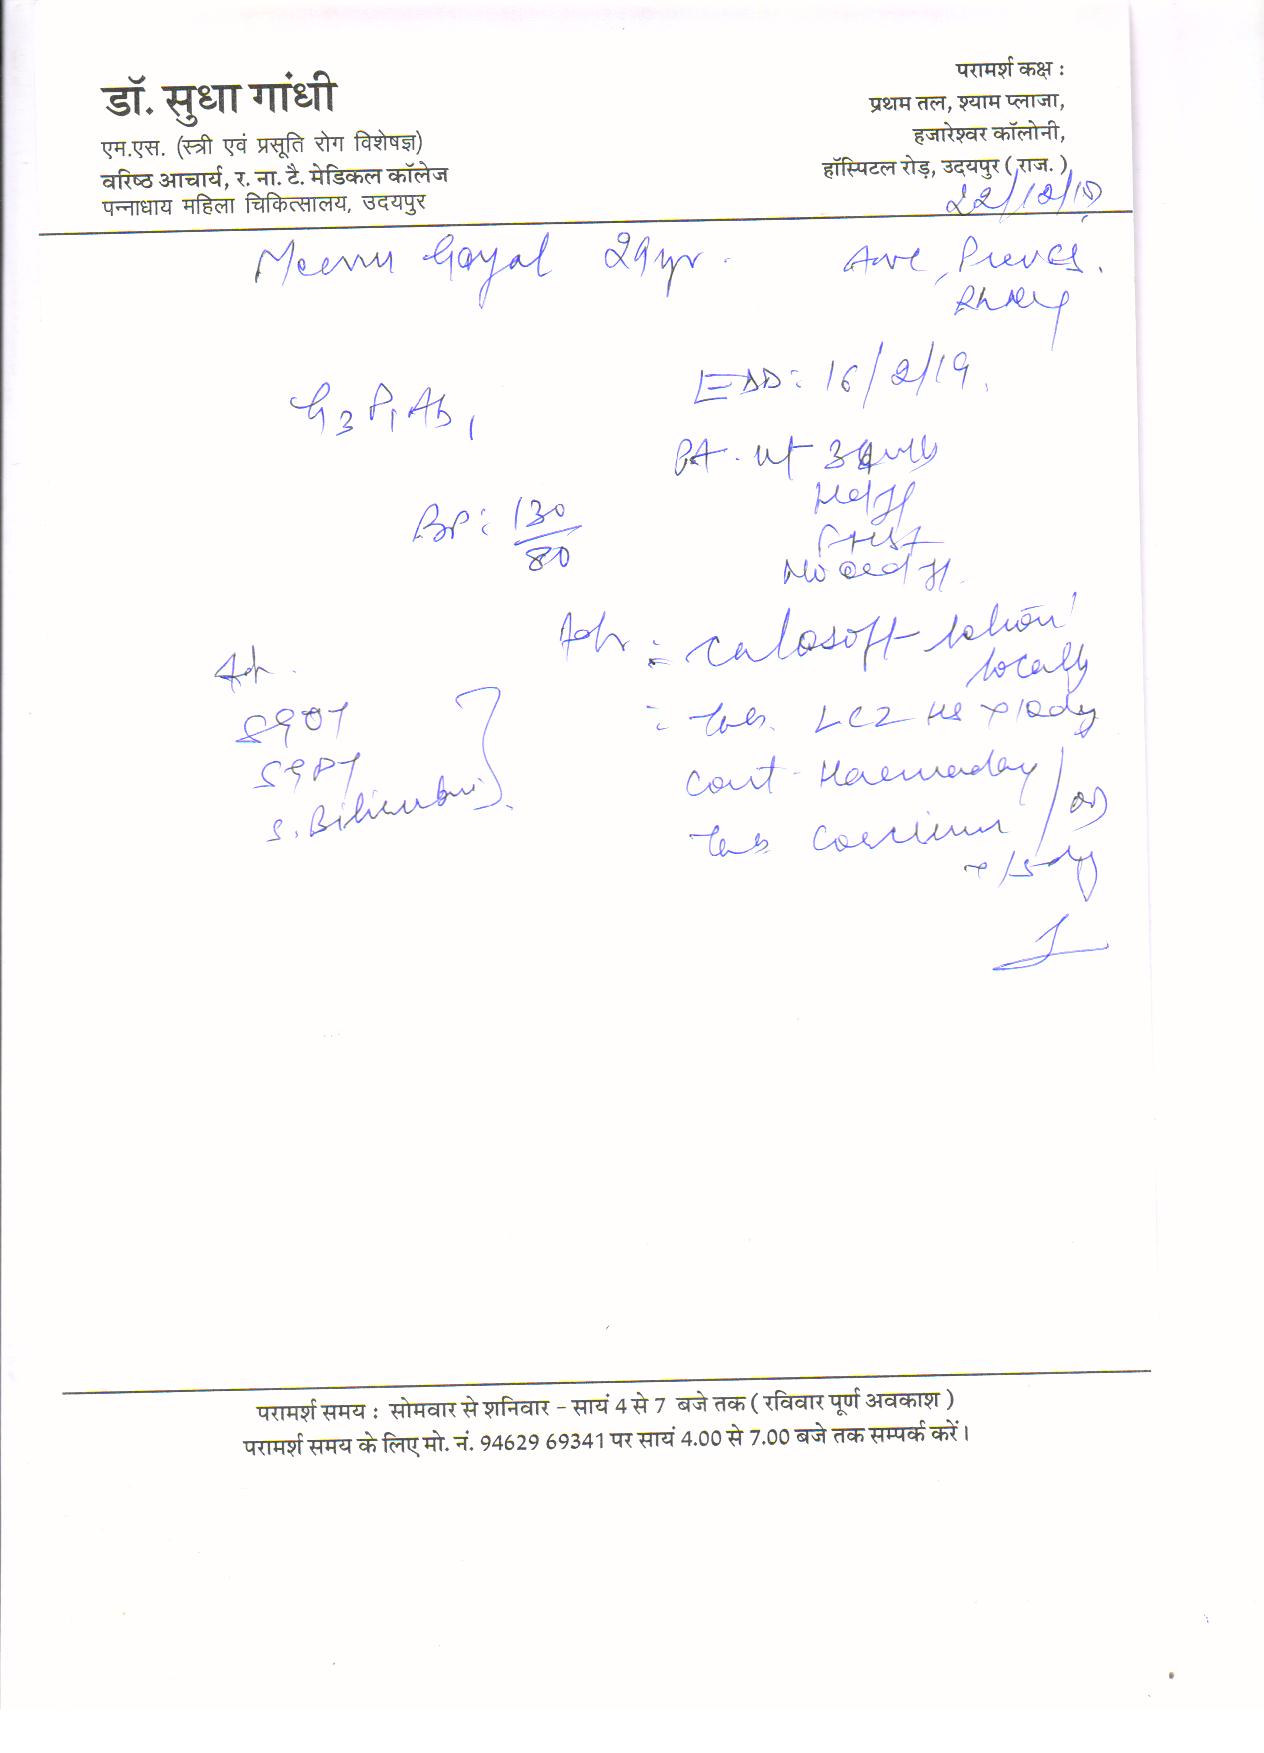 डॉ. सुधा गांधी
एम.एस. (स्त्री एवं प्रसूति रोग विशेषज्ञ)
वरिष्ठ आचार्य, र. ना. टै. मेडिकल कॉलेज
पन्नाधाय महिला चिकित्सालय, उदयपुर
परामर्श कक्ष :
प्रथम तल, श्याम प्लाजा,
हजारेश्वर कॉलोनी,
हॉस्पिटल रोड़, उदयपुर ( राज. )
22/12/18
Meenu Goyal 29yr.
Prev CS.
Rh Neg
G3 P1 Ab1
EDD: 16/2/19.
PA. ut
BP: 130/80
No oed
Adv : Calosoft lotion
locally
Adv.
SGOT
SGPT
S. Bilirubin
Tab. LCZ HS x 10dy
Cont Haemaday
Tab
x 15dy
परामर्श समय : सोमवार से शनिवार - सायं 4 से 7 बजे तक ( रविवार पूर्ण अवकाश )
परामर्श समय के लिए मो. नं. 94629 69341 पर सायं 4.00 से 7.00 बजे तक सम्पर्क करें।